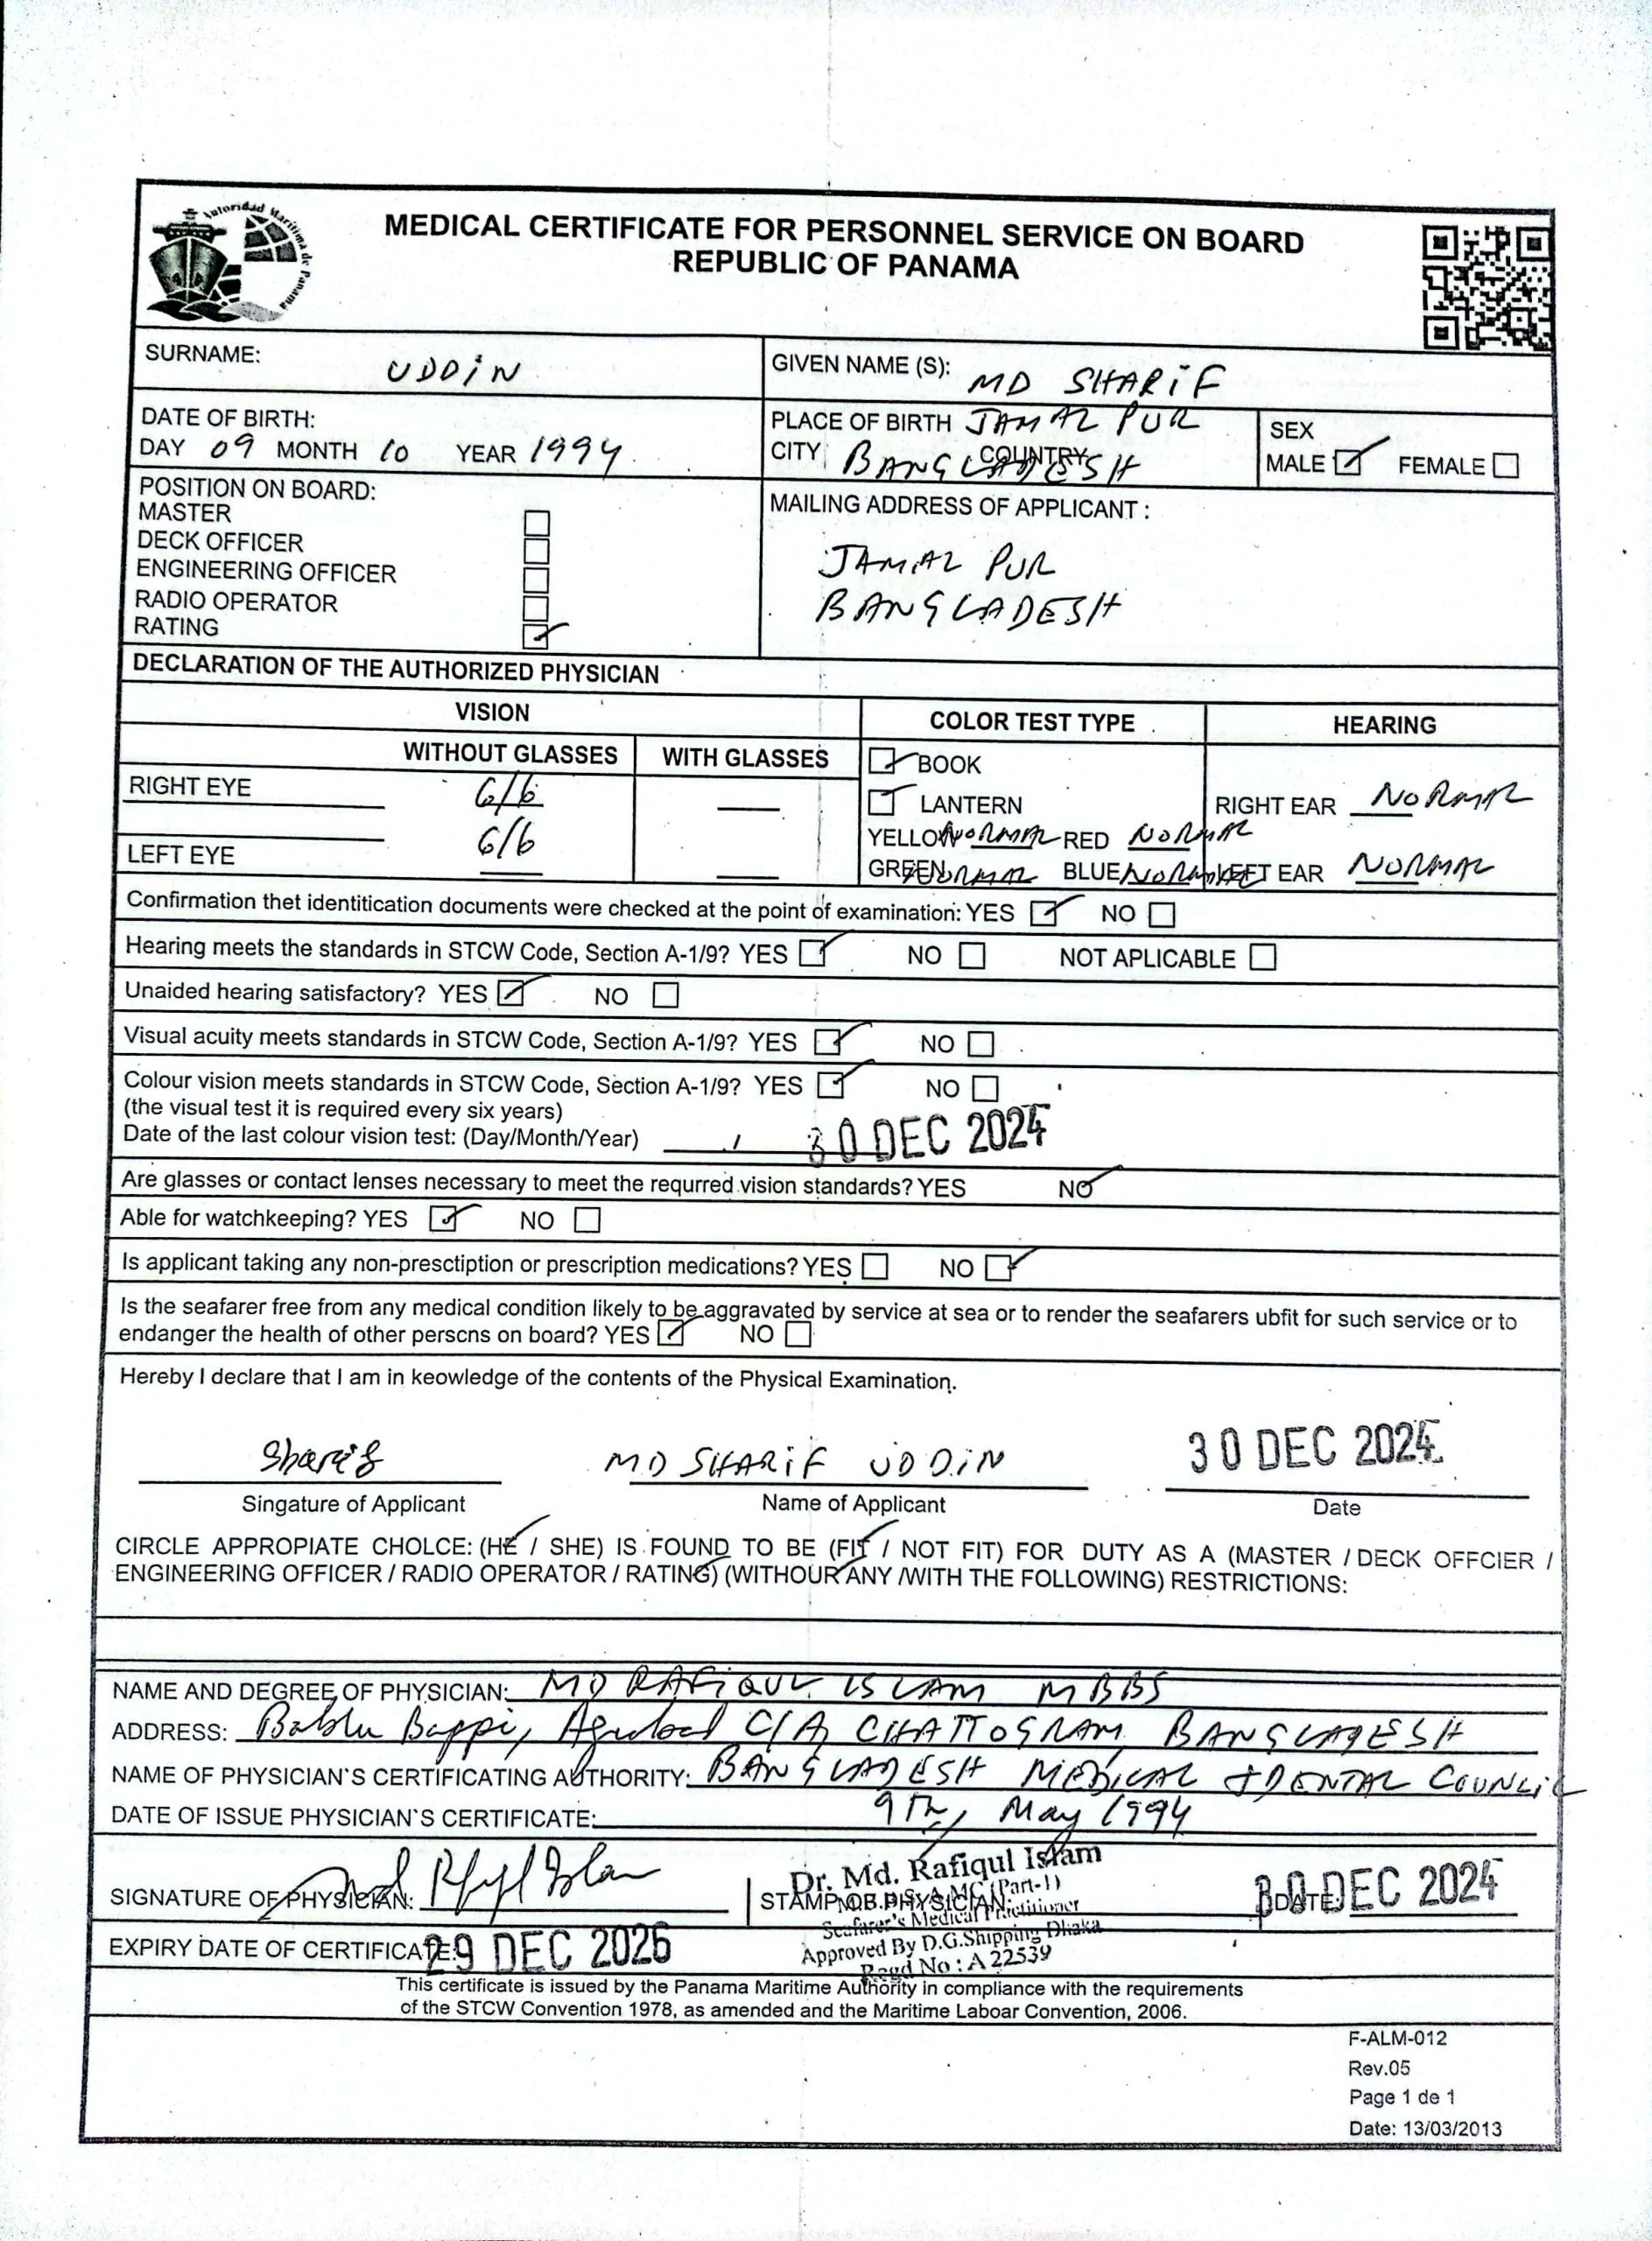 Autoridad Marítima de Panamá
MEDICAL CERTIFICATE FOR PERSONNEL SERVICE ON BOARD
REPUBLIC OF PANAMA
SURNAME: UDDIN
GIVEN NAME (S): MD SHARIF
DATE OF BIRTH:
DAY 09 MONTH 10 YEAR 1994
PLACE OF BIRTH JAMALPUR
CITY BANGLADESH COUNTRY
SEX
MALE FEMALE
POSITION ON BOARD:
MASTER
DECK OFFICER
ENGINEERING OFFICER
RADIO OPERATOR
RATING
MAILING ADDRESS OF APPLICANT :
JAMALPUR
BANGLADESH
DECLARATION OF THE AUTHORIZED PHYSICIAN
VISION
WITHOUT GLASSES WITH GLASSES
RIGHT EYE 6/6
LEFT EYE 6/6
COLOR TEST TYPE
BOOK
LANTERN
YELLOW NORMAL RED NORMAL
GREEN NORMAL BLUE NORMAL
HEARING
RIGHT EAR NORMAL
LEFT EAR NORMAL
Confirmation thet identitication documents were checked at the point of examination: YES NO
Hearing meets the standards in STCW Code, Section A-1/9? YES NO NOT APLICABLE
Unaided hearing satisfactory? YES NO
Visual acuity meets standards in STCW Code, Section A-1/9? YES NO
Colour vision meets standards in STCW Code, Section A-1/9? YES NO
(the visual test it is required every six years)
Date of the last colour vision test: (Day/Month/Year) 30 DEC 2024
Are glasses or contact lenses necessary to meet the requrred vision standards? YES NO
Able for watchkeeping? YES NO
Is applicant taking any non-presctiption or prescription medications? YES NO
Is the seafarer free from any medical condition likely to be aggravated by service at sea or to render the seafarers ubfit for such service or to
endanger the health of other perscns on board? YES NO
Hereby I declare that I am in keowledge of the contents of the Physical Examination.
Sharif MD SHARIF UDDIN 30 DEC 2024
Singature of Applicant Name of Applicant Date
CIRCLE APPROPIATE CHOLCE: (HE / SHE) IS FOUND TO BE (FIT / NOT FIT) FOR DUTY AS A (MASTER / DECK OFFCIER /
ENGINEERING OFFICER / RADIO OPERATOR / RATING) (WITHOUR ANY /WITH THE FOLLOWING) RESTRICTIONS:
NAME AND DEGREE OF PHYSICIAN: MD RAFIQUL ISLAM MBBS
ADDRESS: Bablu Bappi, Agrabad C/A, CHATTOGRAM, BANGLADESH
NAME OF PHYSICIAN'S CERTIFICATING AUTHORITY: BANGLADESH MEDICAL & DENTAL COUNCIL
DATE OF ISSUE PHYSICIAN'S CERTIFICATE: 9Th, May 1994
SIGNATURE OF PHYSICIAN:
STAMP OF PHYSICIAN:
Dr. Md. Rafiqul Islam
(Part-1)
Seafarer's Medical Practitioner
Approved By D.G.Shipping Dhaka
Regd No : A 22539
DATE: 30 DEC 2024
EXPIRY DATE OF CERTIFICATE: 29 DEC 2026
This certificate is issued by the Panama Maritime Authority in compliance with the requirements
of the STCW Convention 1978, as amended and the Maritime Laboar Convention, 2006.
F-ALM-012
Rev.05
Page 1 de 1
Date: 13/03/2013